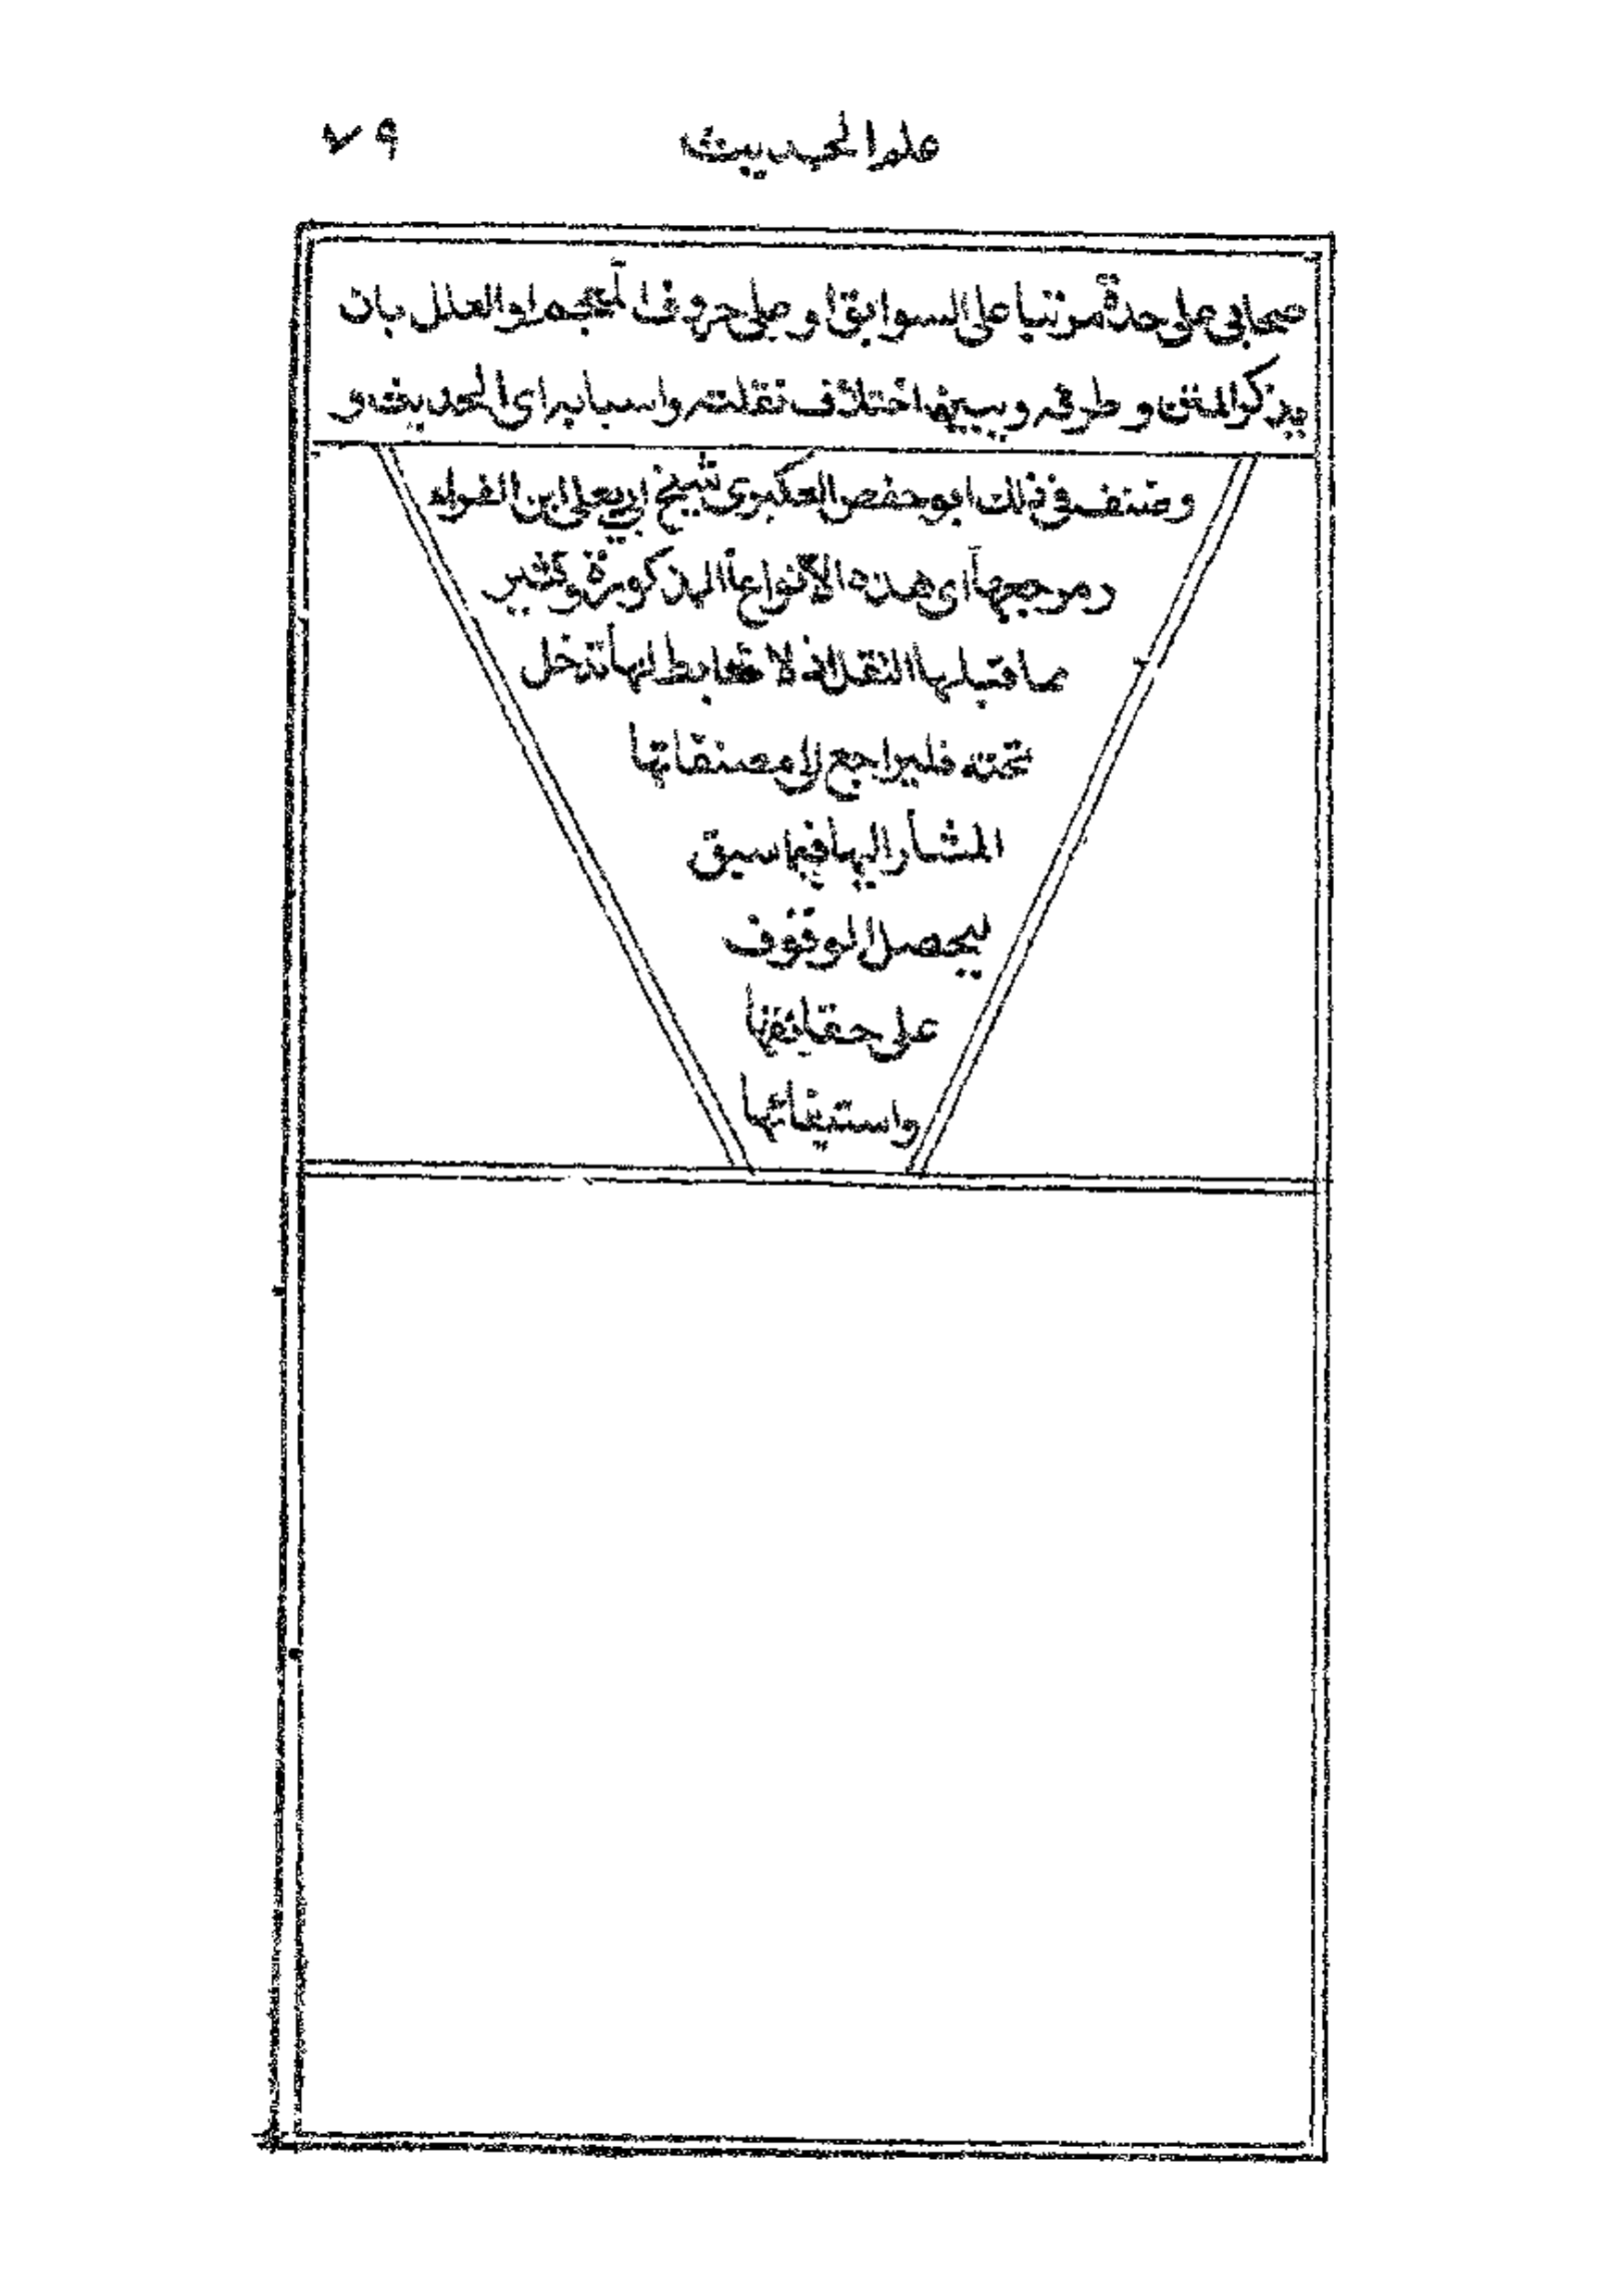 علم الحديث ٧٩
صحابي على حدة مرتبا على السوابق او على حروف المعجم او العلل بان
يذكر المتن وطرقه ويبين اختلاف نقلته واسبابه اى الحديث و
وصنف فى ذلك ابو حفص العكبرى شيخ ابى يعلى ابن الفراء
ومرجعها اى هذه الانواع المذكورة وكثير
مما قبلها النقل اذ لا ضابط لها تدخل
تحته فليراجع الى مصنفاتها
المشار اليها فيما سبق
ليحصل الوقوف
على حقائقها
واستيفائها